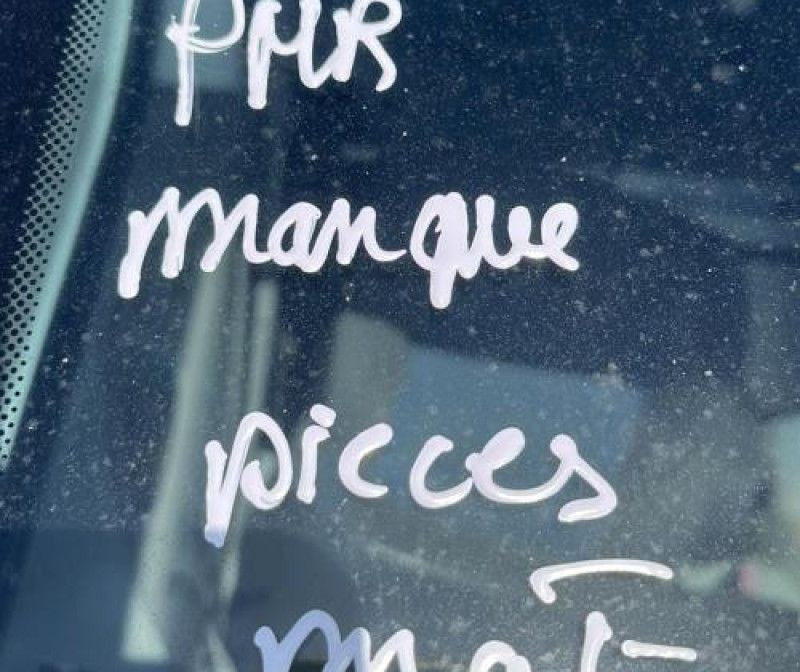 PMR
manque
pieces